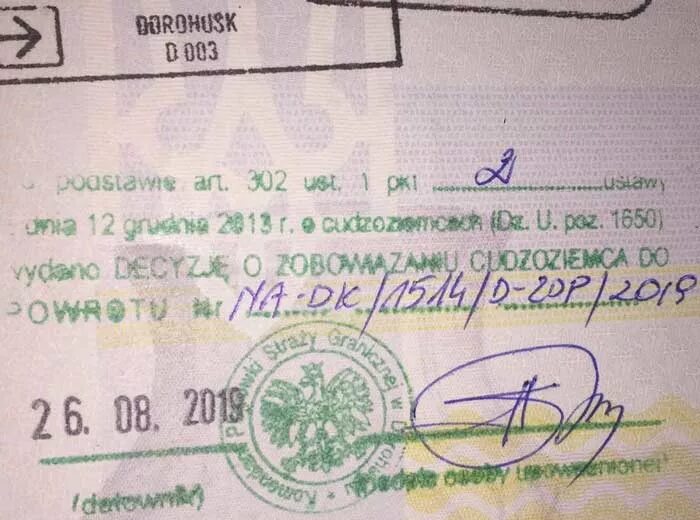 DOROHUSK
D 003
podstawie art. 302 ust. 1 pkt 2 ustawy
dnia 12 grudnia 2013 r. o cudzoziemcach (Dz. U. poz. 1650)
wydano DECYZJĘ O ZOBOWIĄZANIU CUDZOZIEMCA DO
POWROTU Nr NA-DK/1514/D-ZDP/2019
26. 08. 2019
Komendant Placówki Straży Granicznej w Dorohusku
/datownik/
/podpis osoby upoważnionej/